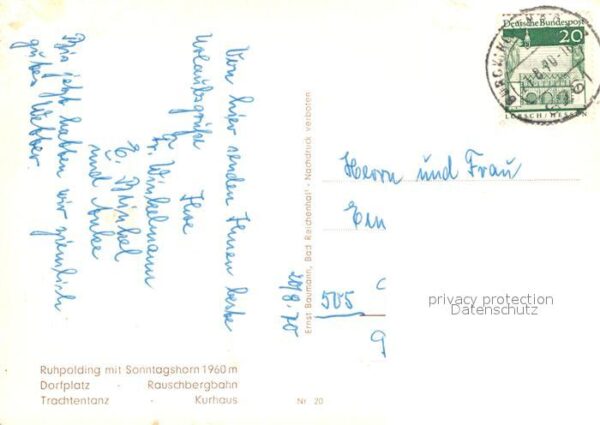 Von hier senden Ihnen beste
Urlaubsgrüße
Ihre
Fr. Winkelmann
und Anke
Bis jetzt hatten wir ziemlich
gutes Wetter.
20.8.70
Ernst Baumann, Bad Reichenhall · Nachdruck verboten
Deutsche Bundespost
20
LORSCH/HESSEN
Herrn und Frau
505
privacy protection
Datenschutz
Ruhpolding mit Sonntagshorn 1960 m
Dorfplatz - Rauschbergbahn
Trachtentanz - Kurhaus
Nr. 20